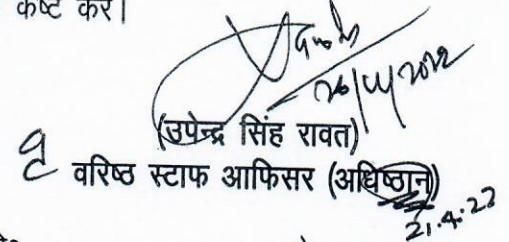 कष्ट करें।
(उपेन्द्र सिंह रावत)
वरिष्ठ स्टाफ आफिसर (अधिष्ठान)
21.4.22